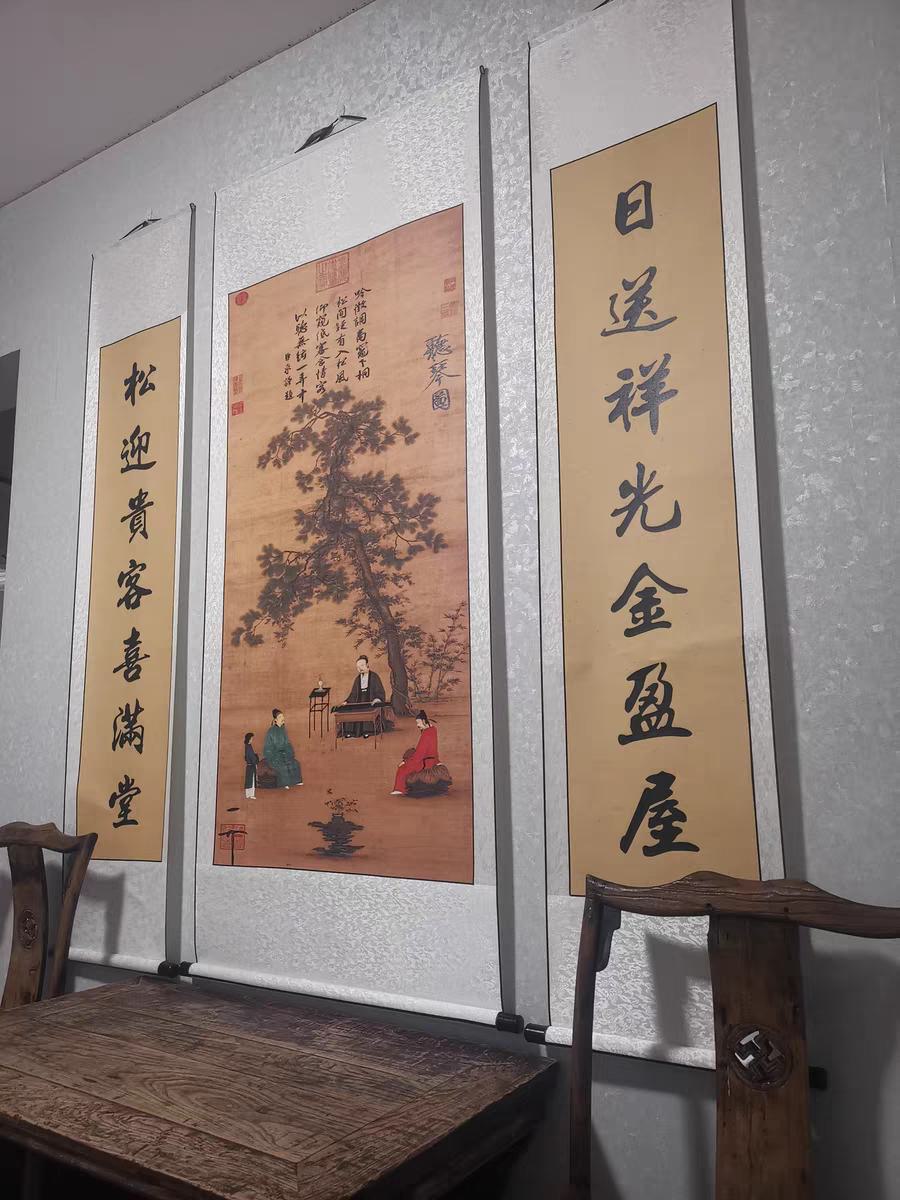 日送祥光金盈屋
聽琴圖
吟徵調商竈下桐
松間疑有入松風
仰窺低審含情客
以聽無絃一弄中
臣京謹題
松迎貴客喜滿堂